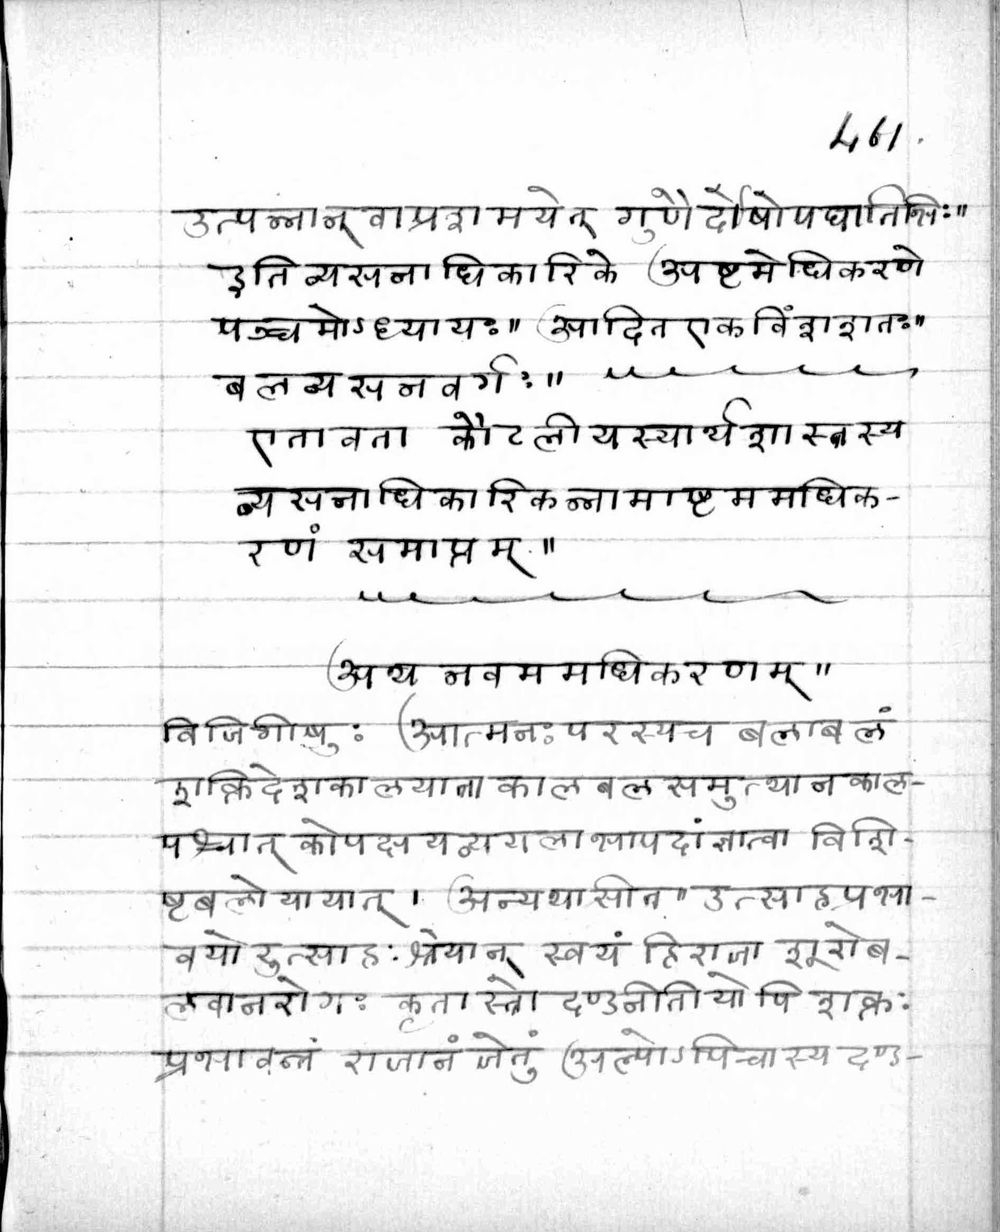 461.
उत्पन्नान् वा प्रशमयेत् गुणैर्दोषोपघातिभिः॥
इति व्यसनाधिकारिके अष्टमेधिकरणे
पञ्चमोऽध्यायः॥ आदित एकविंशशतः॥
बलव्यसनवर्गः॥
एतावता कौटलीयस्यार्थशास्त्रस्य
व्यसनाधिकारिकन्नामाष्टममधिक-
रणं समाप्तम्॥
अथ नवममधिकरणम्॥
विजिगीषुः आत्मनः परस्यच बलाबलं
शक्तिदेशकालयात्राकालबलसमुत्थानकाल-
पश्चात् कोपक्षयव्ययलाभापदां ज्ञात्वा विशि-
ष्टबलो यायात्। अन्यथासीत॥ उत्साहप्रभा-
वयोरुत्साहः श्रेयान् स्वयं हि राजा शूरो ब-
लवानरोगः कृतास्त्रो दण्डनीतियोपि शक्तः
प्रभावन्तं राजानं जेतुं अल्पोऽपिचास्य दण्ड-